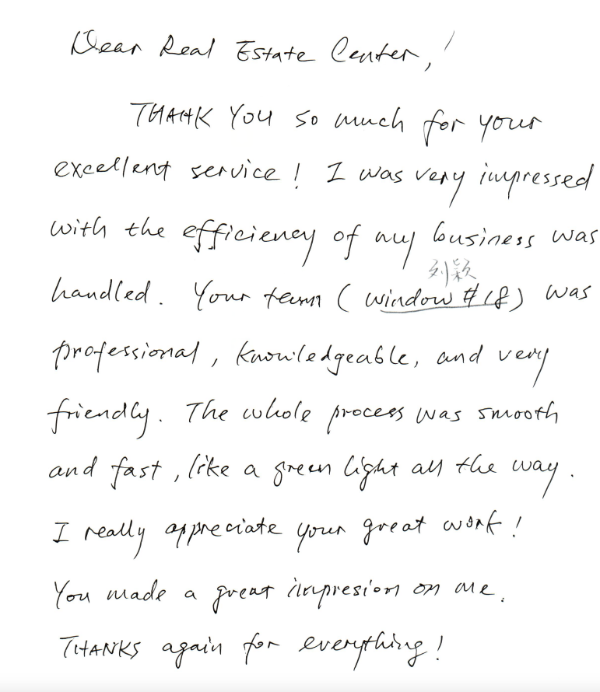 Dear Real Estate Center,!
THANK YOU so much for your
excellent service! I was very impressed
with the efficiency of my business was
刘颖
handled. Your team (window #18) was
professional, knowledgeable, and very
friendly. The whole process was smooth
and fast, like a green light all the way.
I really appreciate your great work!
You made a great impresion on me.
THANKS again for everything!